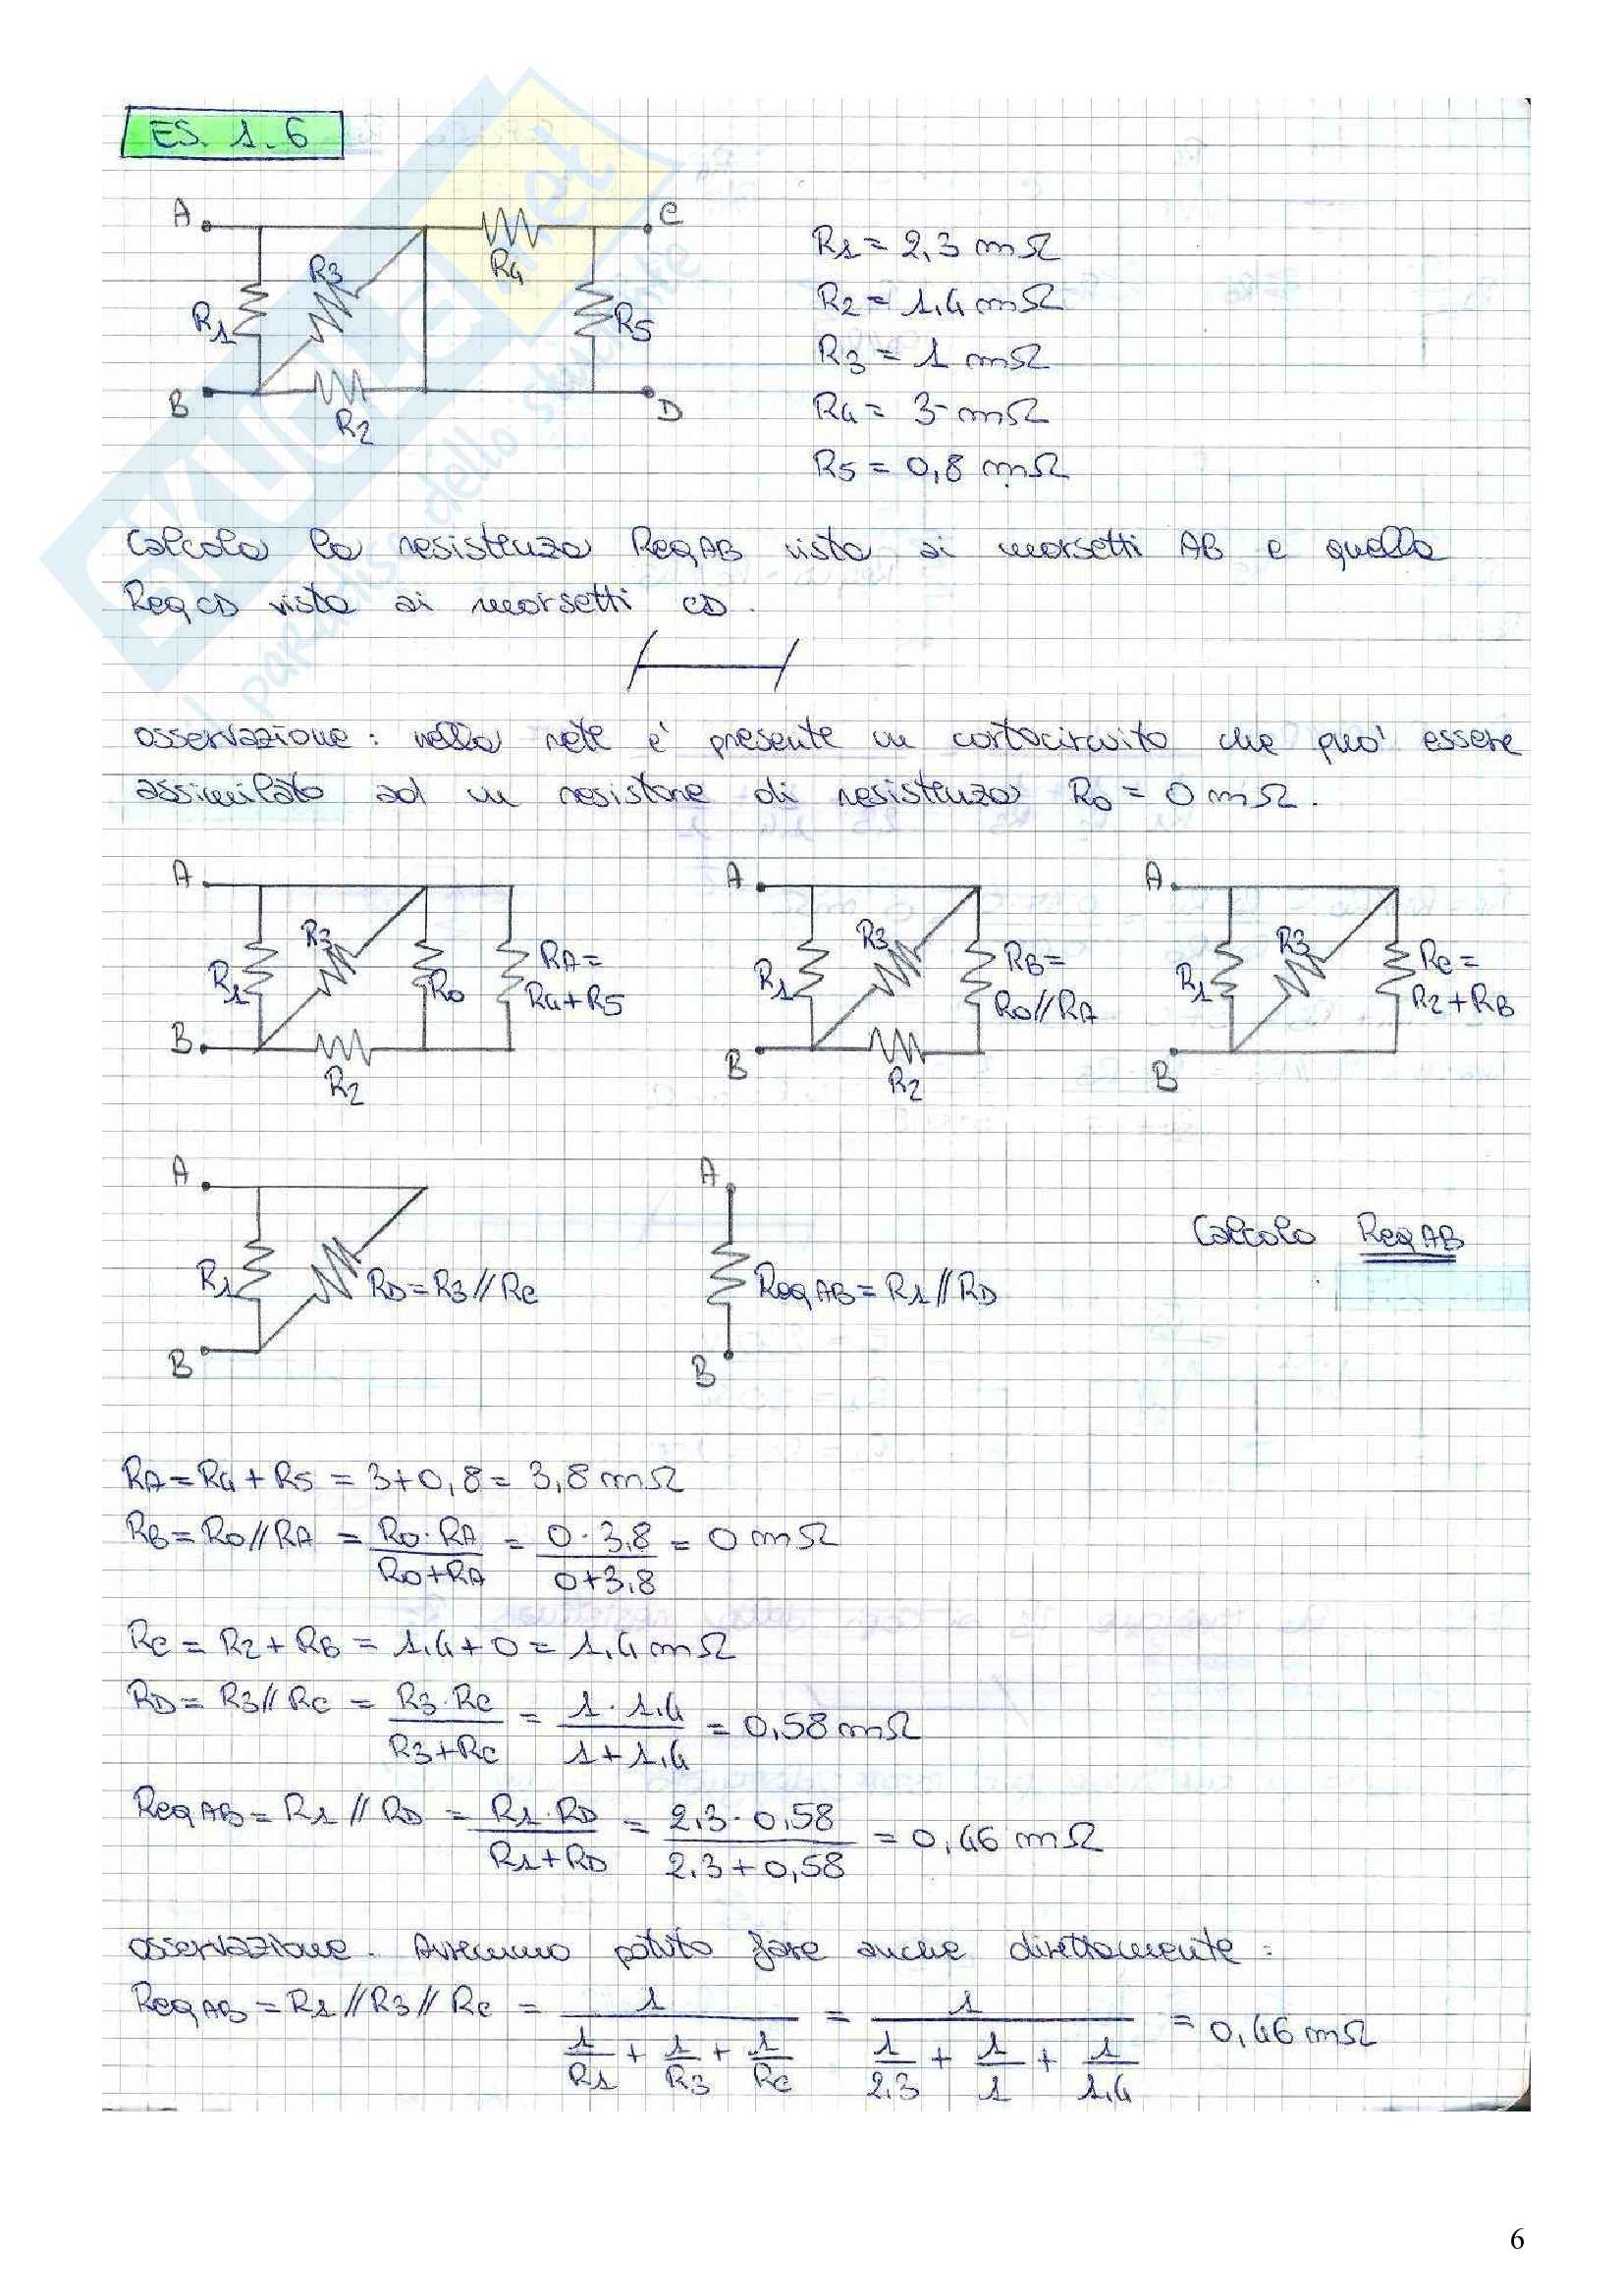 ES. 1.6
A
C
R3
R4
R1
R5
B
R2
D
R1 = 2,3 mΩ
R2 = 1,4 mΩ
R3 = 1 mΩ
R4 = 3 mΩ
R5 = 0,8 mΩ
Calcola la resistenza ReqAB vista ai morsetti AB e quella
ReqCD vista ai morsetti CD.
osservazione: nella rete e' presente un cortocircuito che puo' essere
assimilato ad un resistore di resistenza R0 = 0 mΩ.
A
R3
R1
R0
RA =
R4+R5
B
R2
A
R3
R1
RB =
R0//RA
B
R2
A
R3
R1
RC =
R2+RB
B
A
R1
RD=R3//RC
B
A
ReqAB=R1//RD
B
Calcolo ReqAB
RA = R4 + R5 = 3+0,8 = 3,8 mΩ
RB = R0//RA = R0·RA / R0+RA = 0·3,8 / 0+3,8 = 0 mΩ
RC = R2 + RB = 1,4 + 0 = 1,4 mΩ
RD = R3//RC = R3·RC / R3+RC = 1·1,4 / 1+1,4 = 0,58 mΩ
ReqAB = R1//RD = R1·RD / R1+RD = 2,3·0,58 / 2,3+0,58 = 0,46 mΩ
osservazione. Avremmo potuto fare anche direttamente:
ReqAB = R1//R3//RC = 1 / 1/R1 + 1/R3 + 1/RC = 1 / 1/2,3 + 1/1 + 1/1,4 = 0,46 mΩ
SKUOLA.net
il paradiso dello studente
6